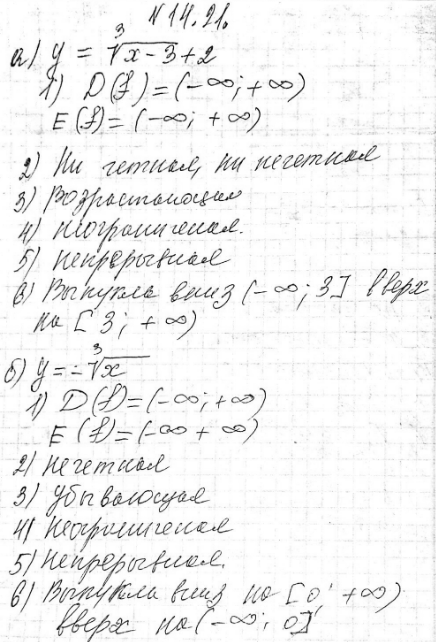 N 14.21.
а) y = ∛(x-3) + 2
1) D(f) = (-∞; +∞)
E(f) = (-∞; +∞)
2) Ни четная, ни нечетная
3) Возрастающая
4) Неограниченая.
5) Непрерывная
6) Выпукла вниз (-∞; 3] вверх
на [3; +∞)
б) y = -∛x
1) D(f) = (-∞; +∞)
E(f) = (-∞ + ∞)
2) Нечетная
3) Убывающая
4) Неограниченая
5) Непрерывная.
6) Выпукла вниз на [0; +∞)
вверх на (-∞; 0]